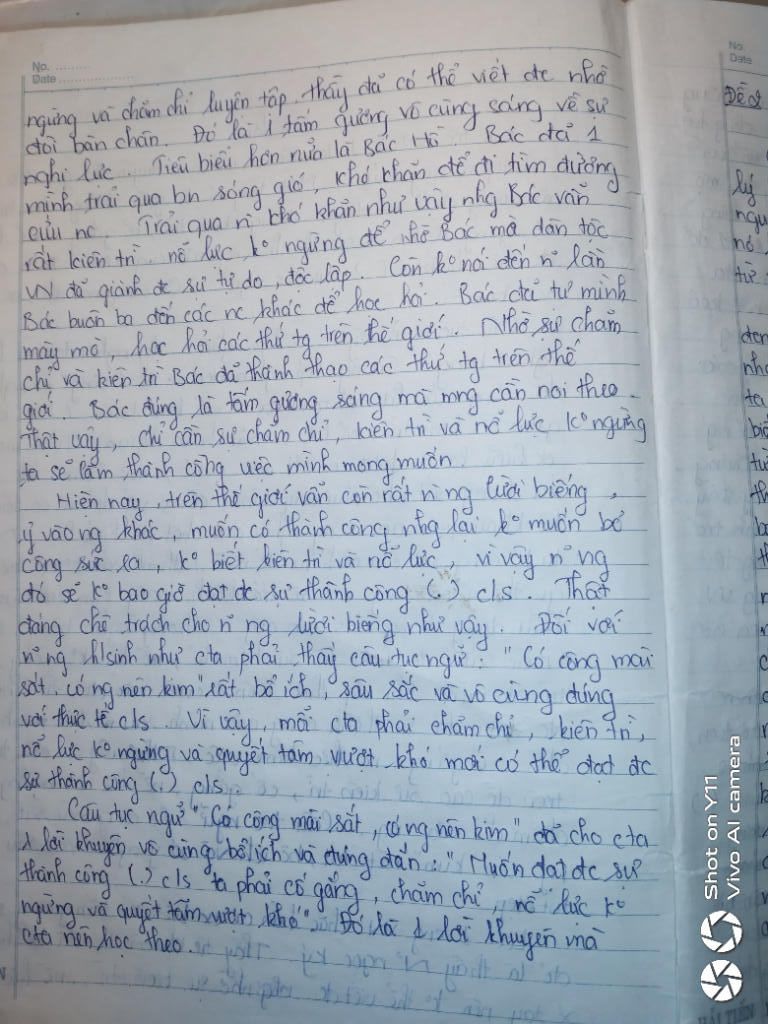 No. ........
Date ....................
ngừng và chăm chỉ luyện tập. thầy đã có thể viết đc nhờ
đôi bàn chân. Đó là 1 tấm gương vô cùng sáng về sự
nghị lực. Tiêu biểu hơn nữa là Bác Hồ. Bác đã 1
mình trải qua bn sóng gió, khó khăn để đi tìm đường
cứu nc. Trải qua n~ khó khăn như vậy nhg Bác vẫn
rất kiên trì. nỗ lực, k° ngừng để nhờ Bác mà dân tộc
VN đã giành đc sự tự do, độc lập. Còn k° nói đến n~ lần
Bác buôn ba đến các nc khác để học hỏi. Bác đã tự mình
mày mò, học hỏi các thứ tg trên thế giới. Nhờ sự chăm
chỉ và kiên trì Bác đã thành thạo các thứ tg trên thế
giới. Bác đúng là tấm gương sáng mà mng cần noi theo.
Thật vậy, chỉ cần sự chăm chỉ, kiên trì và nỗ lực k° ngừng
ta sẽ làm thành công việc mình mong muốn.
Hiện nay, trên thế giới vẫn còn rất n` ng lười biếng,
ỷ vào ng khác, muốn có thành công nhg lại k° muốn bỏ
công sức ra, k° biết kiên trì và nỗ lực, vì vậy n~ ng
đó sẽ k° bao giờ đạt đc sự thành công (.) c/s. Thật
đáng chê trách cho n~ ng lười biếng như vậy. Đối với
n~ ng h/sinh như cta phải thấy câu tục ngữ: "Có công mài
sắt, có ng nên kim" rất bổ ích, sâu sắc và vô cùng đúng
với thực tế c/s. Vì vậy, mỗi cta phải chăm chỉ, kiên trì,
nỗ lực k° ngừng và quyết tâm vượt khó mới có thể đạt đc
sự thành công (.) c/s.
Câu tục ngữ "Có công mài sắt, có ng nên kim" đã cho cta
1 lời khuyên vô cùng bổ ích và đúng đắn: "Muốn đạt đc sự
thành công (.) c/s ta phải cố gắng, chăm chỉ, nỗ lực k°
ngừng và quyết tâm vượt khó". Đó là 1 lời khuyên mà
cta nên học theo.
No.
Date
Đề 2
lý
ngu
nó
từ
đen
nhc
ta
biế
Shot on Y11
Vivo AI camera